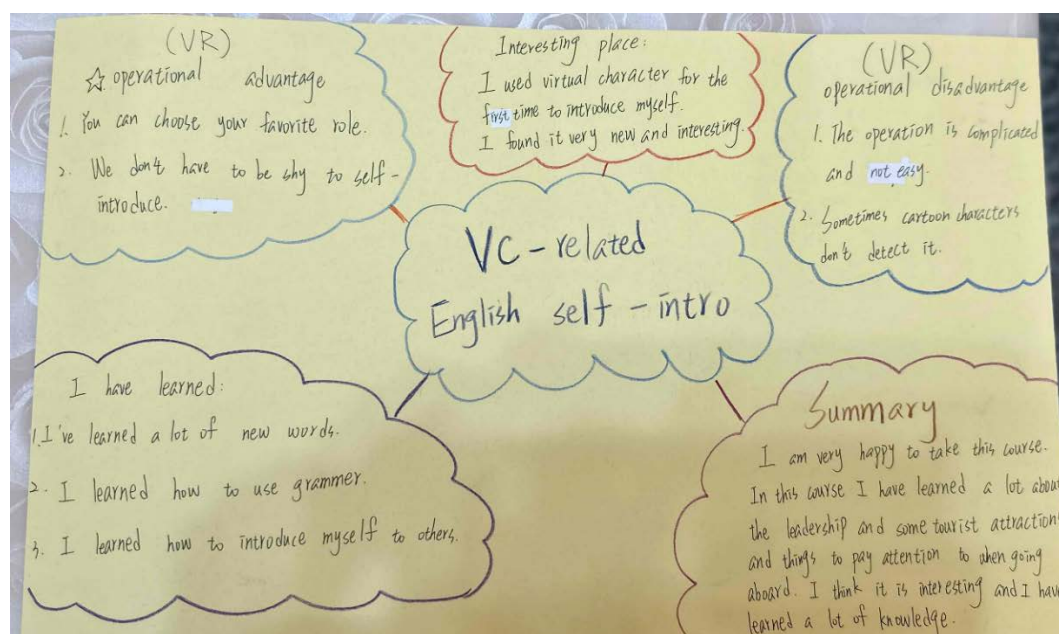 (VR)
☆ operational advantage
1. You can choose your favorite role.
2. We don't have to be shy to self-
introduce.
Interesting place:
I used virtual character for the
first time to introduce myself.
I found it very new and interesting.
(VR)
operational disadvantage
1. The operation is complicated
and not easy.
2. Sometimes cartoon characters
don't detect it.
VC-related
English self-intro
I have learned:
1. I've learned a lot of new words.
2. I learned how to use grammer.
3. I learned how to introduce myself to others.
Summary
I am very happy to take this course.
In this course I have learned a lot about
the leadership and some tourist attractions
and things to pay attention to when going
aboard. I think it is interesting and I have
learned a lot of knowledge.